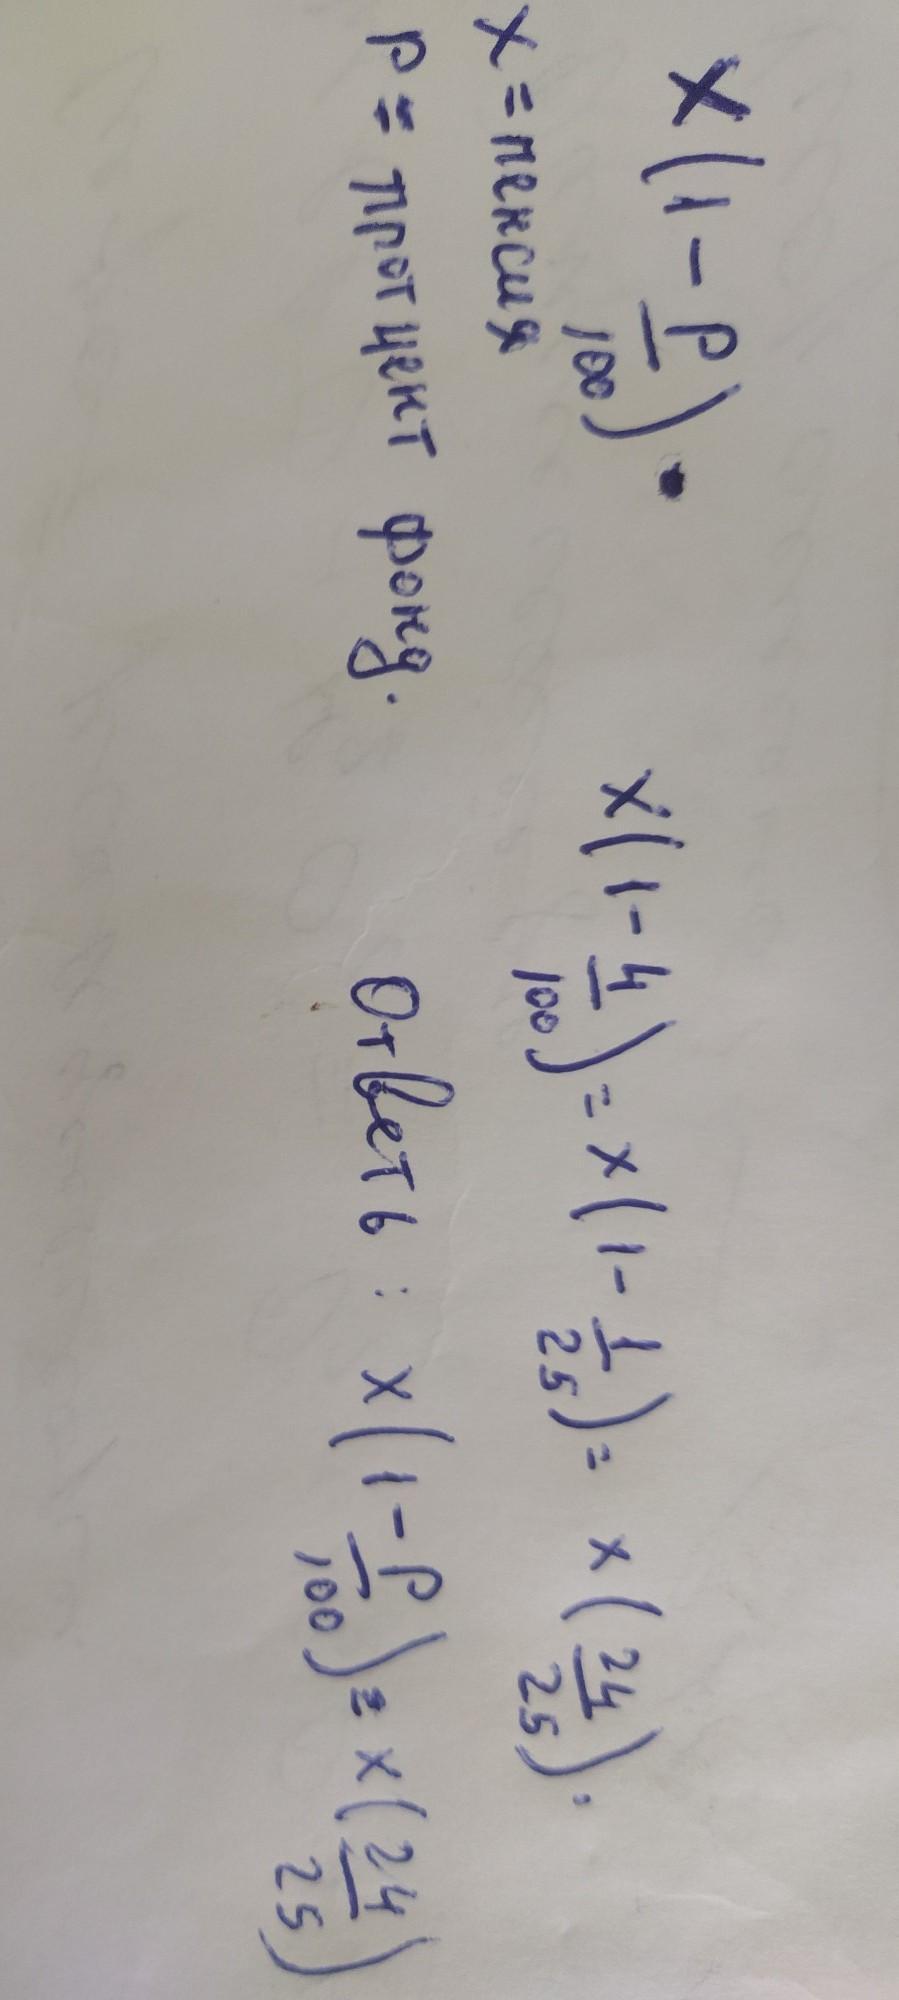 x(1 - p/100).
x = пенсия
p = протцент фонд.
x(1 - 4/100) = x(1 - 1/25) = x(24/25).
Ответь : x(1 - p/100) = x(24/25)